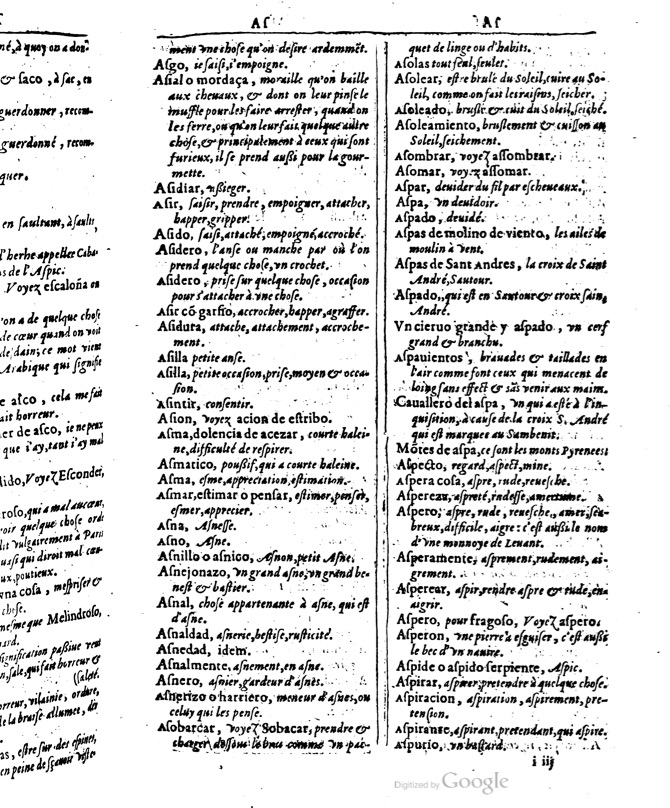 né, à quoy on a don-
& saco, à sac, en
guerdonner, recom-
guerdonné, recom-
quer.
en saultant, à sault,
d'herbe appellee Caba-
as de l'Aspic.
Voyez escaloña en
on a de quelque chose
de cœur quand on voit
de dain; ce mot vient
Arabique qui signifie
e asco, cela me fait
ait horreur.
er de asco, ie ne peux
que i'ay, tant i'ay mal
dido, Voyez Esconder,
roso, qui a mal au cœur,
oir quelque chose ord
dit vulgairement à Paris
ussi qui diroit mal cœu-
ux, poutieux.
una cosa, mespriser &
chose.
mesme que Melindroso,
ard.
signification passiue veut
n, sale, qui fait horreur &
(saleté.
orreur, vilainie, ordure,
de la braise allumet, des
as, estre sur des espines,
en peine de sçauoir
AS
ment vne chose qu'on desire ardemmēt.
Asgo, ie saisi, i'empoigne.
Asial o mordaça, moraille qu'on baille
aux cheuaux, & dont on leur pinse le
muffle pour les faire arrester, quand on
les ferre, ou qu'on leur fait quelque autre
chose, & principalement à ceux qui sont
furieux, il se prend aussi pour la gour-
mette.
Asidiar, assieger.
Asir, saisir, prendre, empoigner, attacher,
happer, gripper.
Asido, saisi, attaché, empoigné, accroché.
Asidero, l'anse ou manche par où l'on
prend quelque chose, vn crochet.
Asidero, prise sur quelque chose, occasion
pour s'attacher à vne chose.
Asir cō garfio, accrocher, happer, agraffer.
Asidura, attache, attachement, accroche-
ment.
Asilla petite anse.
Asilla, petite occasion, prise, moyen & occa-
sion.
Asintir, consentir.
Asion, voyez acion de estribo.
Asma, dolencia de acezar, courte halei-
ne, difficulté de respirer.
Asmatico, poussif, qui a courte haleine.
Asma, esme, appreciation, estimation.
Asmar, estimar o pensar, estimer, penser,
esmer, apprecier.
Asna, Asnesse.
Asno, Asne.
Asnillo o asnico, Asnon, petit Asne.
Asnejonazo, vn grand asne, vn grand be-
nest & bastier.
Asnal, chose appartenante à asne, qui est
d'asne.
Asnaldad, asnerie, bestise, rusticité.
Asnedad, idem.
Asnalmente, asnement, en asne.
Asnero, asnier, gardeur d'asnes.
Asnerizo o harriero, meneur d'asnes, ou
celuy qui les pense.
Asobarcar, voyez Sobacar, prendre &
charger dessous le bras comme vn pac-
AS
quet de linge ou d'habits.
Asolas tout seul, seulet.
Asolear, estre brulé du Soleil, cuire au So-
leil, comme on fait les raisins, seicher.
Asoleado, bruslé & cuit du Soleil, seiché.
Asoleamiento, bruslement & cuisson au
Soleil, seichement.
Asombrar, voyez assombrar.
Asomar, voyez assomar.
Aspar, deuider du fil par escheueaux.
Aspa, vn deuidoir.
Aspado, deuidé.
Aspas de molino de viento, les ailes de
moulin à vent.
Aspas de Sant Andres, la croix de Saint
André, Sautour.
Aspado, qui est en Sautour & croix saint
André.
Vn cieruo grande y aspado, vn cerf
grand & branchu.
Aspauientos, brauades & taillades en
l'air comme font ceux qui menacent de
loing sans effect & sās venir aux mains.
Cauallero del aspa, vn qui a esté à l'in-
quisition, à cause de la croix S. André
qui est marquee au Sambenit.
Mōtes de aspa, ce sont les monts Pyrenees.
Aspecto, regard, aspect, mine.
Aspera cosa, aspre, rude, reuesche.
Aspereza, aspreté, rudesse, amertume.
Aspero, aspre, rude, reuesche, amer, sca-
breux, difficile, aigre: c'est aussi le nom
d'vne monnoye de Leuant.
Asperamente, asprement, rudement, ai-
grement.
Asperear, aspir, rendre aspre & rude, en-
aigrir.
Aspero, pour fragoso, Voyez aspero.
Asperon, vne pierre à esguiser, c'est aussi
le bec d'vn nauire.
Aspide o aspido serpiente, Aspic.
Aspirar, aspirer, pretendre à quelque chose.
Aspiracion, aspiration, aspirement, pre-
tension.
Aspirante, aspirant, pretendant, qui aspire.
Aspurio, vn bastard.
i iij
Digitized by Google